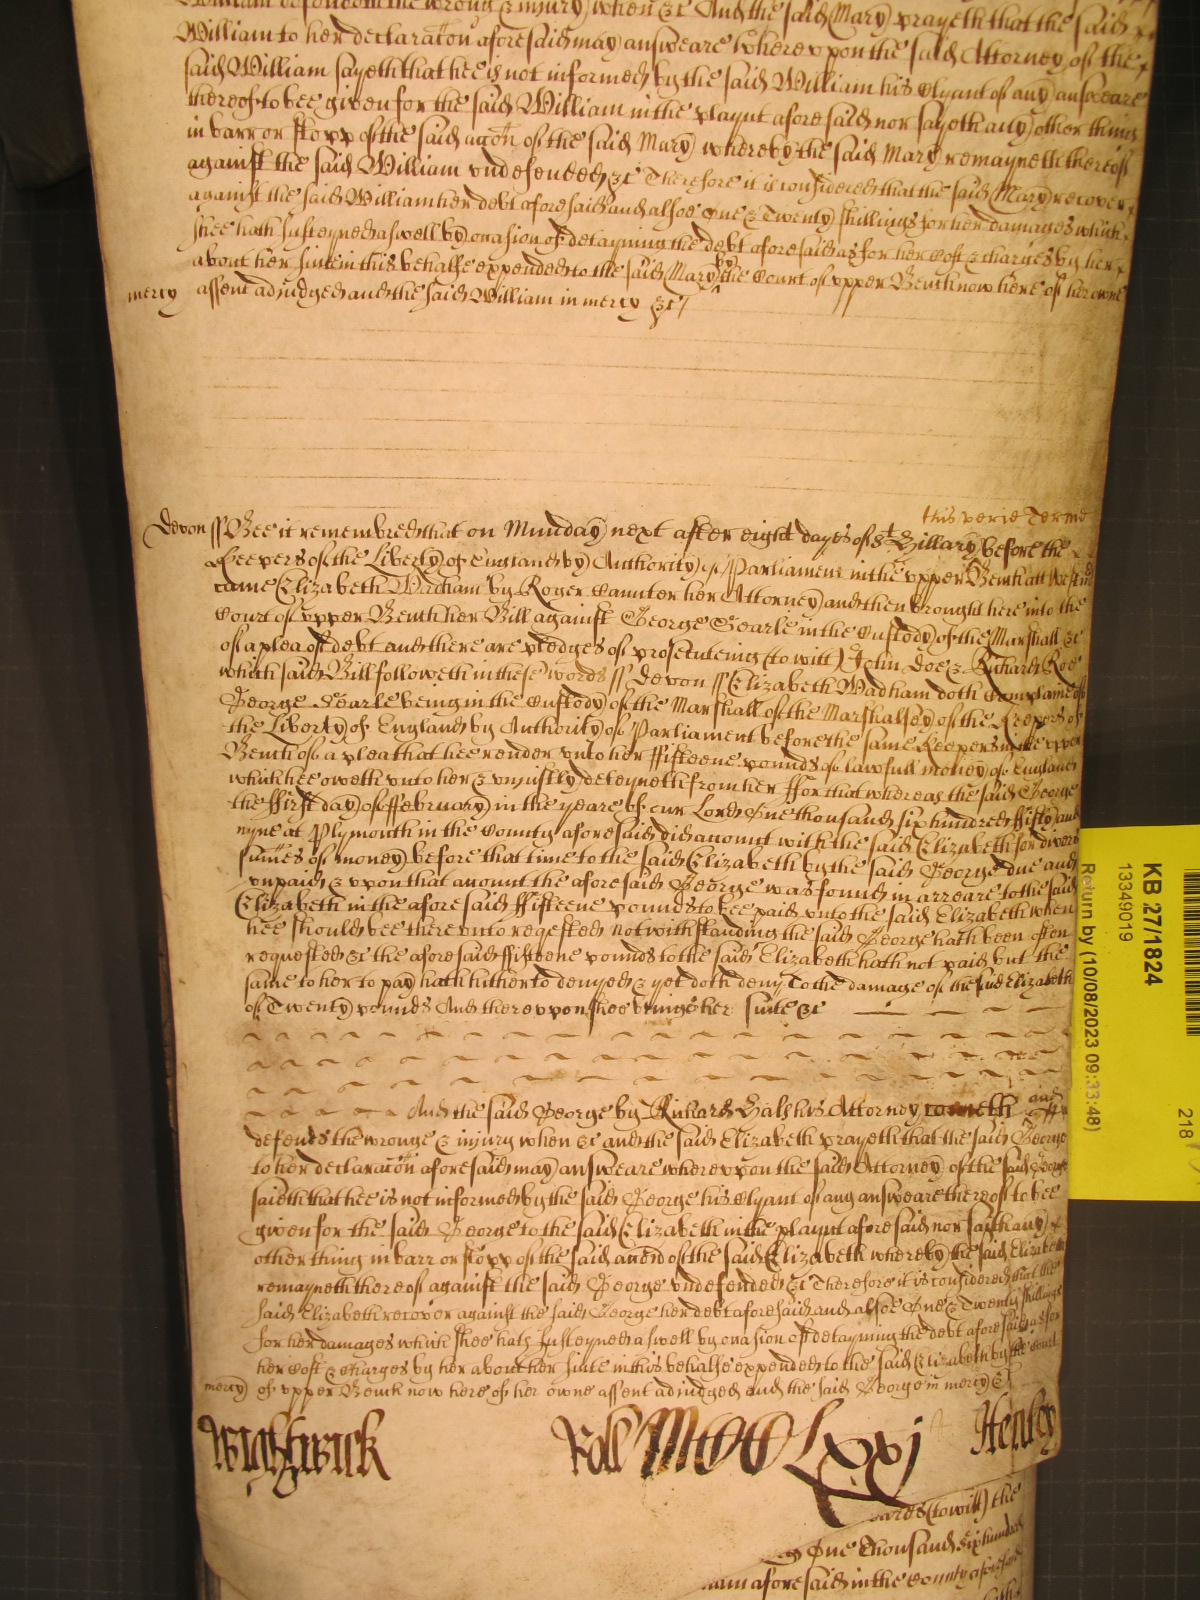 William defendeth the wrong & injury when &c And the said Mary prayeth that the said
William to her declaracon aforesaid may answeare whereupon the said Attorney of the
said William sayeth that hee is not informed by the said William his Clyant of any answeare
thereof to bee given for the said William in the playnt aforesaid nor sayeth any other thing
in barr or stopp of the said accon of the said Mary whereby the said Mary remayneth thereof
against the said William undefended &c Therefore it is considered that the said Mary recover
against the said William her debt aforesaid and alsoe One & Twenty shillings for her damages which
shee hath susteyned aswell by occasion of detayning the debt aforesaid as for her Cost & charges by her
about her suite in this behalfe expended to the said Mary by the Court of upper Bench now here of her owne
mercy assent adjudged and the said William in mercy &c
this verie Terme
Devon ss Bee it remembred that on Munday next after eight dayes of St Hillary before the
Keepers of the Liberty of England by Authority of Parliament in the upper Bench att Westm
came Elizabeth Wadham by Roger Caunter her Attorney and then brought here into the
Court of upper Bench her Bill against George Searle in the Custody of the Marshall &c
of a plea of debt and there are pledges of prosecuteing (to witt) John Doe & Richard Roe
which said Bill followeth in these words ss Devon ss Elizabeth Wadham doth Complaine of
George Searle being in the Custody of the Marshall of the Marshalsey of the Keepers of
the Liberty of England by Authority of Parliament before the same Keepers in the upper
Bench of a plea that hee render unto her ffifteene pounds of lawfull money of England
which hee oweth unto her & unjustly deteyneth from her ffor that whereas the said George
the ffirst day of ffebruary in the yeare of our Lord One thousand six hundred ffifty and
nyne at Plymouth in the County aforesaid did account with the said Elizabeth for divers
sumes of money before that time to the said Elizabeth by the said George due and
unpaid & upon that account the aforesaid George was found in arreare to the said
Elizabeth in the aforesaid ffifteene pounds to bee paid unto the said Elizabeth when
hee should bee thereunto reqested Notwithstanding the said George hath been often
requested &c the aforesaid ffifteene pounds to the said Elizabeth hath not paid but the
same to her to pay hath hitherto denyed & yet doth deny To the damage of the said Elizabeth
of Twenty pounds And thereupon shee brings her suite &c
And the said George by Richard Hals his Attorney cometh and
defends the wronge & injury when &c and the said Elizabeth prayeth that the said George
to her declaracon aforesaid may answeare whereupon the said Attorney of the said George
saieth that hee is not informed by the said George his Clyant of any answeare thereof to bee
given for the said George to the said Elizabeth in the playnt aforesaid nor saith any
other thing in barr or stopp of the said accon of the said Elizabeth whereby the said Elizabeth
remayneth thereof against the said George undefended &c Therefore it is considered that the
said Elizabeth recover against the said George her debt aforesaid and alsoe One & Twenty shillings
for her damages which shee hath susteyned aswell by occasion of detayning the debt aforesaid as for
her Cost & charges by her about her suite in this behalfe expended to the said Elizabeth by the Court
mercy of upper Bench now here of her owne assent adjudged and the said George in mercy &c
Wightwick Roll MCCCLxxj Henley
(to witt) the
One thousand six hundred
aforesaid in the County aforesaid
KB 27/1824
13349019
Return by (10/08/2023 09:33:48)
218